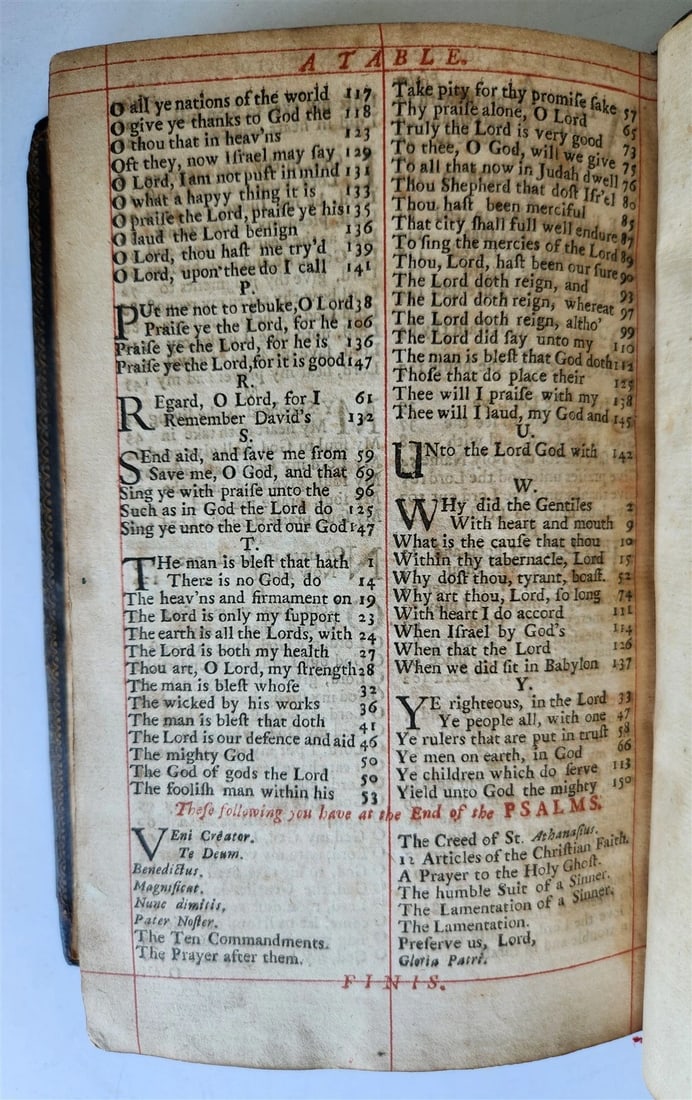 A TABLE.
O all ye nations of the world 117
O give ye thanks to God the 118
O thou that in heav'ns 123
Oft they, now Iſrael may ſay 129
O Lord, I am not puft in mind 131
O what a hapyy thing it is 133
O praiſe the Lord, praiſe ye his 135
O laud the Lord benign 136
O Lord, thou haſt me try'd 139
O Lord, upon thee do I call 141
P.
PUt me not to rebuke, O Lord 38
Praiſe ye the Lord, for he 106
Praiſe ye the Lord, for he is 136
Praiſe ye the Lord, for it is good 147
R.
REgard, O Lord, for I 61
Remember David's 132
S.
SEnd aid, and ſave me from 59
Save me, O God, and that 69
Sing ye with praiſe unto the 96
Such as in God the Lord do 125
Sing ye unto the Lord our God 147
T.
THe man is bleſt that hath 1
There is no God, do 14
The heav'ns and firmament on 19
The Lord is only my ſupport 23
The earth is all the Lords, with 24
The Lord is both my health 27
Thou art, O Lord, my ſtrength 28
The man is bleſt whoſe 32
The wicked by his works 36
The man is bleſt that doth 41
The Lord is our defence and aid 46
The mighty God 50
The God of gods the Lord 50
The fooliſh man within his 53
Take pity for thy promiſe ſake 57
Thy praiſe alone, O Lord 65
Truly the Lord is very good 73
To thee, O God, will we give 75
To all that now in Judah dwell 76
Thou Shepherd that doſt Iſr'el 80
Thou haſt been merciful 85
That city ſhall full well endure 87
To ſing the mercies of the Lord 89
Thou, Lord, haſt been our ſure 90
The Lord doth reign, and 93
The Lord doth reign, whereat 97
The Lord doth reign, altho' 99
The Lord did ſay unto my 110
The man is bleſt that God doth 112
Thoſe that do place their 125
Thee will I praiſe with my 138
Thee will I laud, my God and 145
U.
UNto the Lord God with 142
W.
WHy did the Gentiles 2
With heart and mouth 9
What is the cauſe that thou 10
Within thy tabernacle, Lord 15
Why doſt thou, tyrant, boaſt. 52
Why art thou, Lord, ſo long 74
With heart I do accord 111
When Iſrael by God's 114
When that the Lord 126
When we did ſit in Babylon 137
Y.
YE righteous, in the Lord 33
Ye people all, with one 47
Ye rulers that are put in truſt 58
Ye men on earth, in God 66
Ye children which do ſerve 113
Yield unto God the mighty 150
Theſe following you have at the End of the PSALMS.
VEni Creator.
Te Deum.
Benedictus.
Magnificat.
Nunc dimitis.
Pater Noſter.
The Ten Commandments.
The Prayer after them.
The Creed of St. Athanaſius.
12 Articles of the Chriſtian Faith.
A Prayer to the Holy Ghoſt.
The humble Suit of a Sinner.
The Lamentation of a Sinner.
The Lamentation.
Preſerve us, Lord,
Gloria Patri.
FINIS.